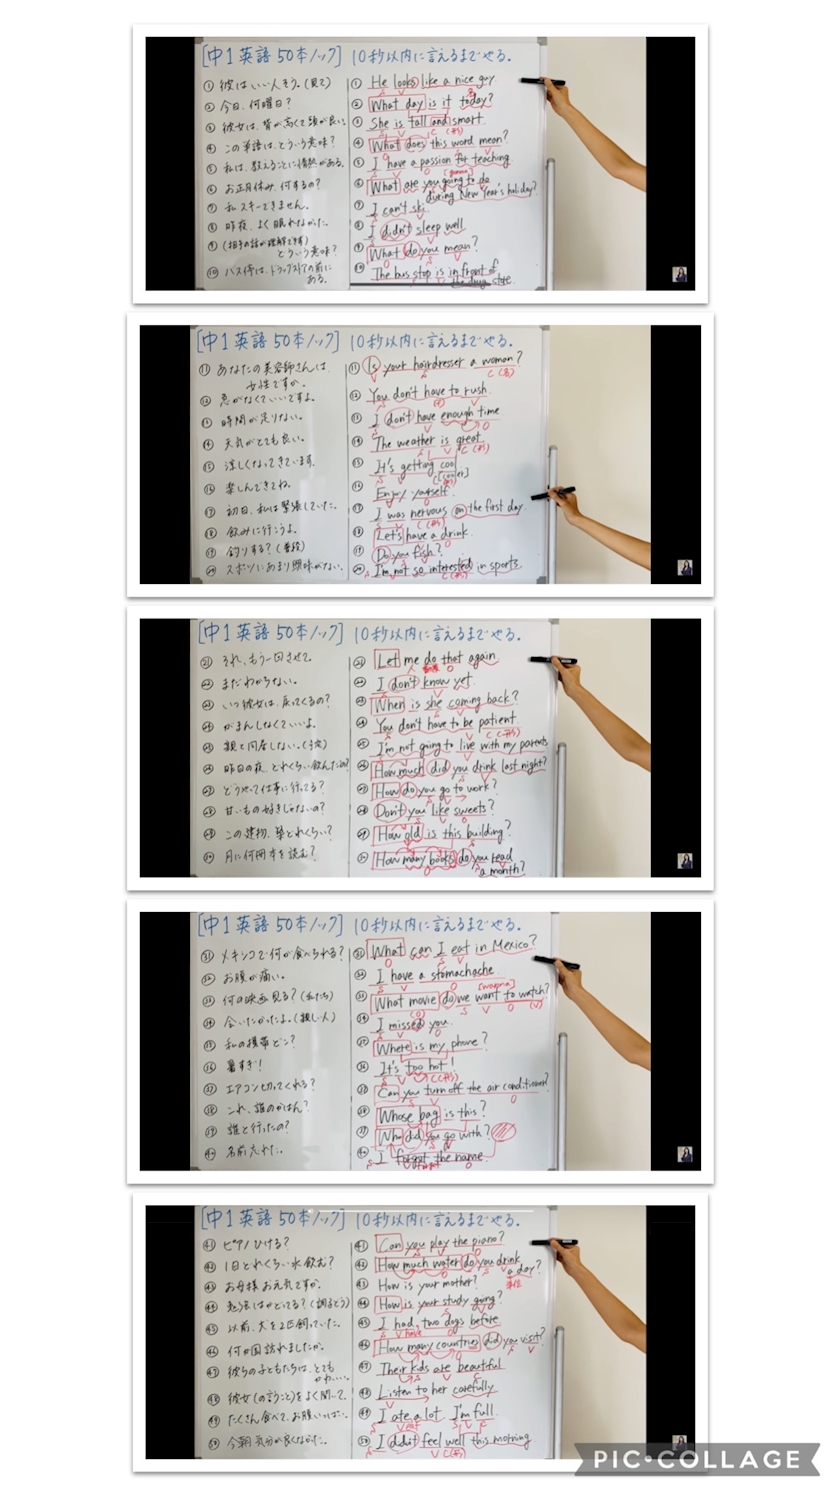 [中1英語50本ノック] 10秒以内に言えるまでやる。
① 彼はいい人そう。(見て) ① He looks like a nice guy.
② 今日、何曜日? ② What day is it today?
③ 彼女は、背が高くて頭が良い ③ She is tall and smart.
④ この単語は、どういう意味? ④ What does this word mean?
⑤ 私は、教えることに情熱がある。 ⑤ I have a passion for teaching.
⑥ お正月休み、何するの? ⑥ What are you going to do
during New Year's holiday?
⑦ 私スキーできません。 ⑦ I can't ski.
⑧ 昨夜、よく眠れなかった。 ⑧ I didn't sleep well.
⑨ (相手の話が理解できず) ⑨ What do you mean?
どういう意味?
⑩ バス停は、ドラッグストアの前に ⑩ The bus stop is in front of
ある。 the drug store.
[中1英語50本ノック] 10秒以内に言えるまでやる。
⑪ あなたの美容師さんは、 ⑪ Is your hairdresser a woman?
女性ですか。
⑫ 急がなくていいですよ。 ⑫ You don't have to rush.
⑬ 時間が足りない。 ⑬ I don't have enough time.
⑭ 天気がとても良い。 ⑭ The weather is great.
⑮ 涼しくなってきています。 ⑮ It's getting cool
[cooler]
⑯ 楽しんできてね。 ⑯ Enjoy yourself.
⑰ 初日、私は緊張していた。 ⑰ I was nervous on the first day.
⑱ 飲みに行こうよ。 ⑱ Let's have a drink.
⑲ 釣りする?(普段) ⑲ Do you fish?
⑳ スポーツにあまり興味がない。 ⑳ I'm not so interested in sports.
[中1英語50本ノック] 10秒以内に言えるまでやる。
㉑ それ、もう一回させて。 ㉑ Let me do that again.
㉒ まだわからない。 ㉒ I don't know yet.
㉓ いつ彼女は、戻ってくるの? ㉓ When is she coming back?
㉔ がまんしなくていいよ。 ㉔ You don't have to be patient.
㉕ 親と同居しない。(予定) ㉕ I'm not going to live with my parents
㉖ 昨日の夜、どれくらい飲んだの? ㉖ How much did you drink last night?
㉗ どうやって仕事に行ってる? ㉗ How do you go to work?
㉘ 甘いもの好きじゃないの? ㉘ Don't you like sweets?
㉙ この建物、築どれくらい? ㉙ How old is this building?
㉚ 月に何冊本を読む? ㉚ How many books do you read
a month?
[中1英語50本ノック] 10秒以内に言えるまでやる。
㉛ メキシコで何が食べられる? ㉛ What can I eat in Mexico?
㉜ お腹が痛い。 ㉜ I have a stomachache.
㉝ 何の映画見る?(私たち) ㉝ What movie do we want to watch?
㉞ 会いたかったよ。(親しい人) ㉞ I missed you.
㉟ 私の携帯どこ? ㉟ Where is my phone?
㊱ 暑すぎ! ㊱ It's too hot!
㊲ エアコン切ってくれる? Can you turn off the air conditioner?
㊳ これ、誰のかばん? ㊳ Whose bag is this?
㊴ 誰と行ったの? ㊴ Who did you go with?
㊵ 名前忘れた。 ㊵ I forgot the name.
[中1英語50本ノック] 10秒以内に言えるまでやる。
㊶ ピアノひける? ㊶ Can you play the piano?
㊷ 1日どれくらい水飲む? ㊷ How much water do you drink
a day?
㊸ お母様お元気ですか。 ㊸ How is your mother?
㊹ 勉強はかどってる?(調子どう) ㊹ How is your study going?
㊺ 以前、犬を2匹飼っていた。 ㊺ I had two dogs before.
㊻ 何か国訪れましたか。 ㊻ How many countries did you visit?
㊼ 彼らの子どもたちは、とても ㊼ Their kids are beautiful
かわいい。
㊽ 彼女(の言うこと)をよく聞いて。 ㊽ Listen to her carefully
㊾ たくさん食べて、お腹いっぱい。 ㊾ I ate a lot. I'm full.
㊿ 今朝気分が良くなかった。 ㊿ I didn't feel well this morning
PIC•COLLAGE